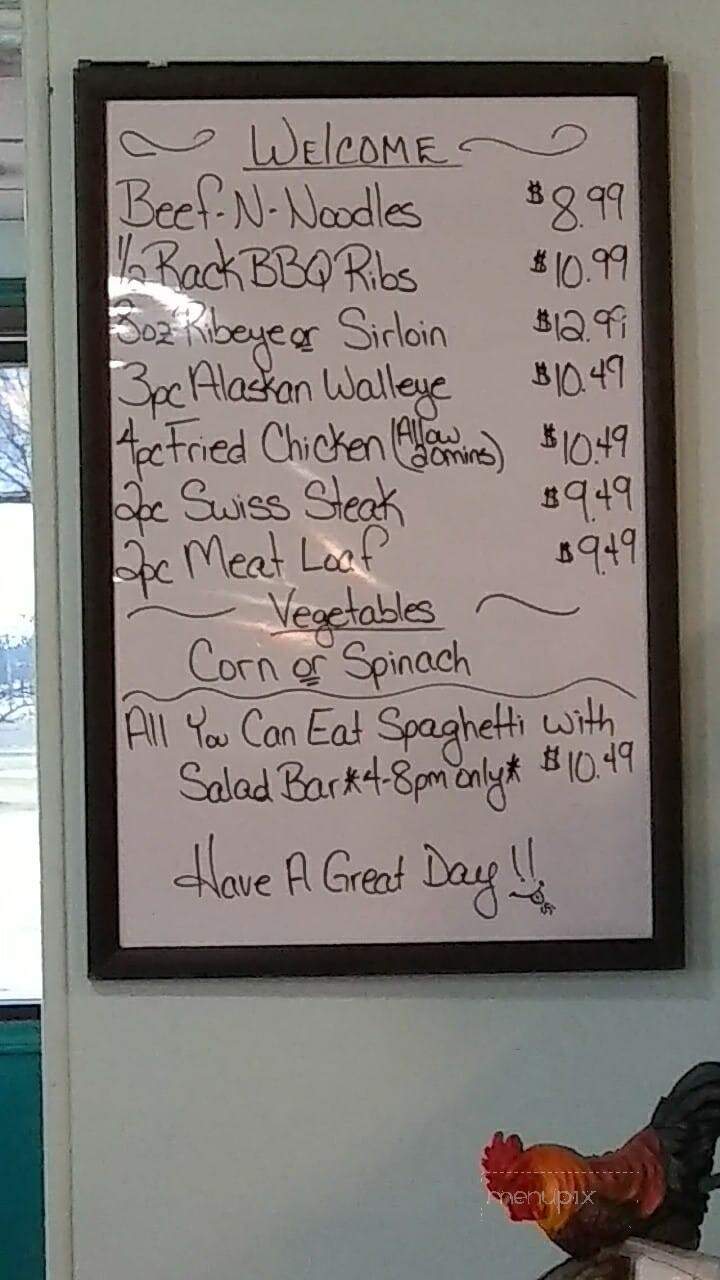 WElCOME
Beef-N-Noodles $8.99
1/2 Rack BBQ Ribs $10.99
8oz Ribeye or Sirloin $12.99
3pc Alaskan Walleye $10.49
4pc Fried Chicken (Allow 20mins) $10.49
2pc Swiss Steak $9.49
2pc Meat Loaf $9.49
Vegetables
Corn or Spinach
All You Can Eat Spaghetti with
Salad Bar *4-8pm only* $10.49
Have A Great Day!!
menupix